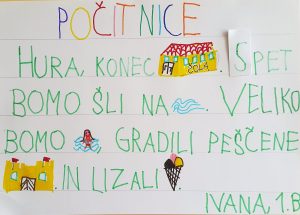 POČITNICE
HURA, KONEC ŠOLA. SPET
BOMO ŠLI NA . VELIKO
BOMO GRADILI PEŠČENE
. IN LIZALI .
IVANA, 1.B